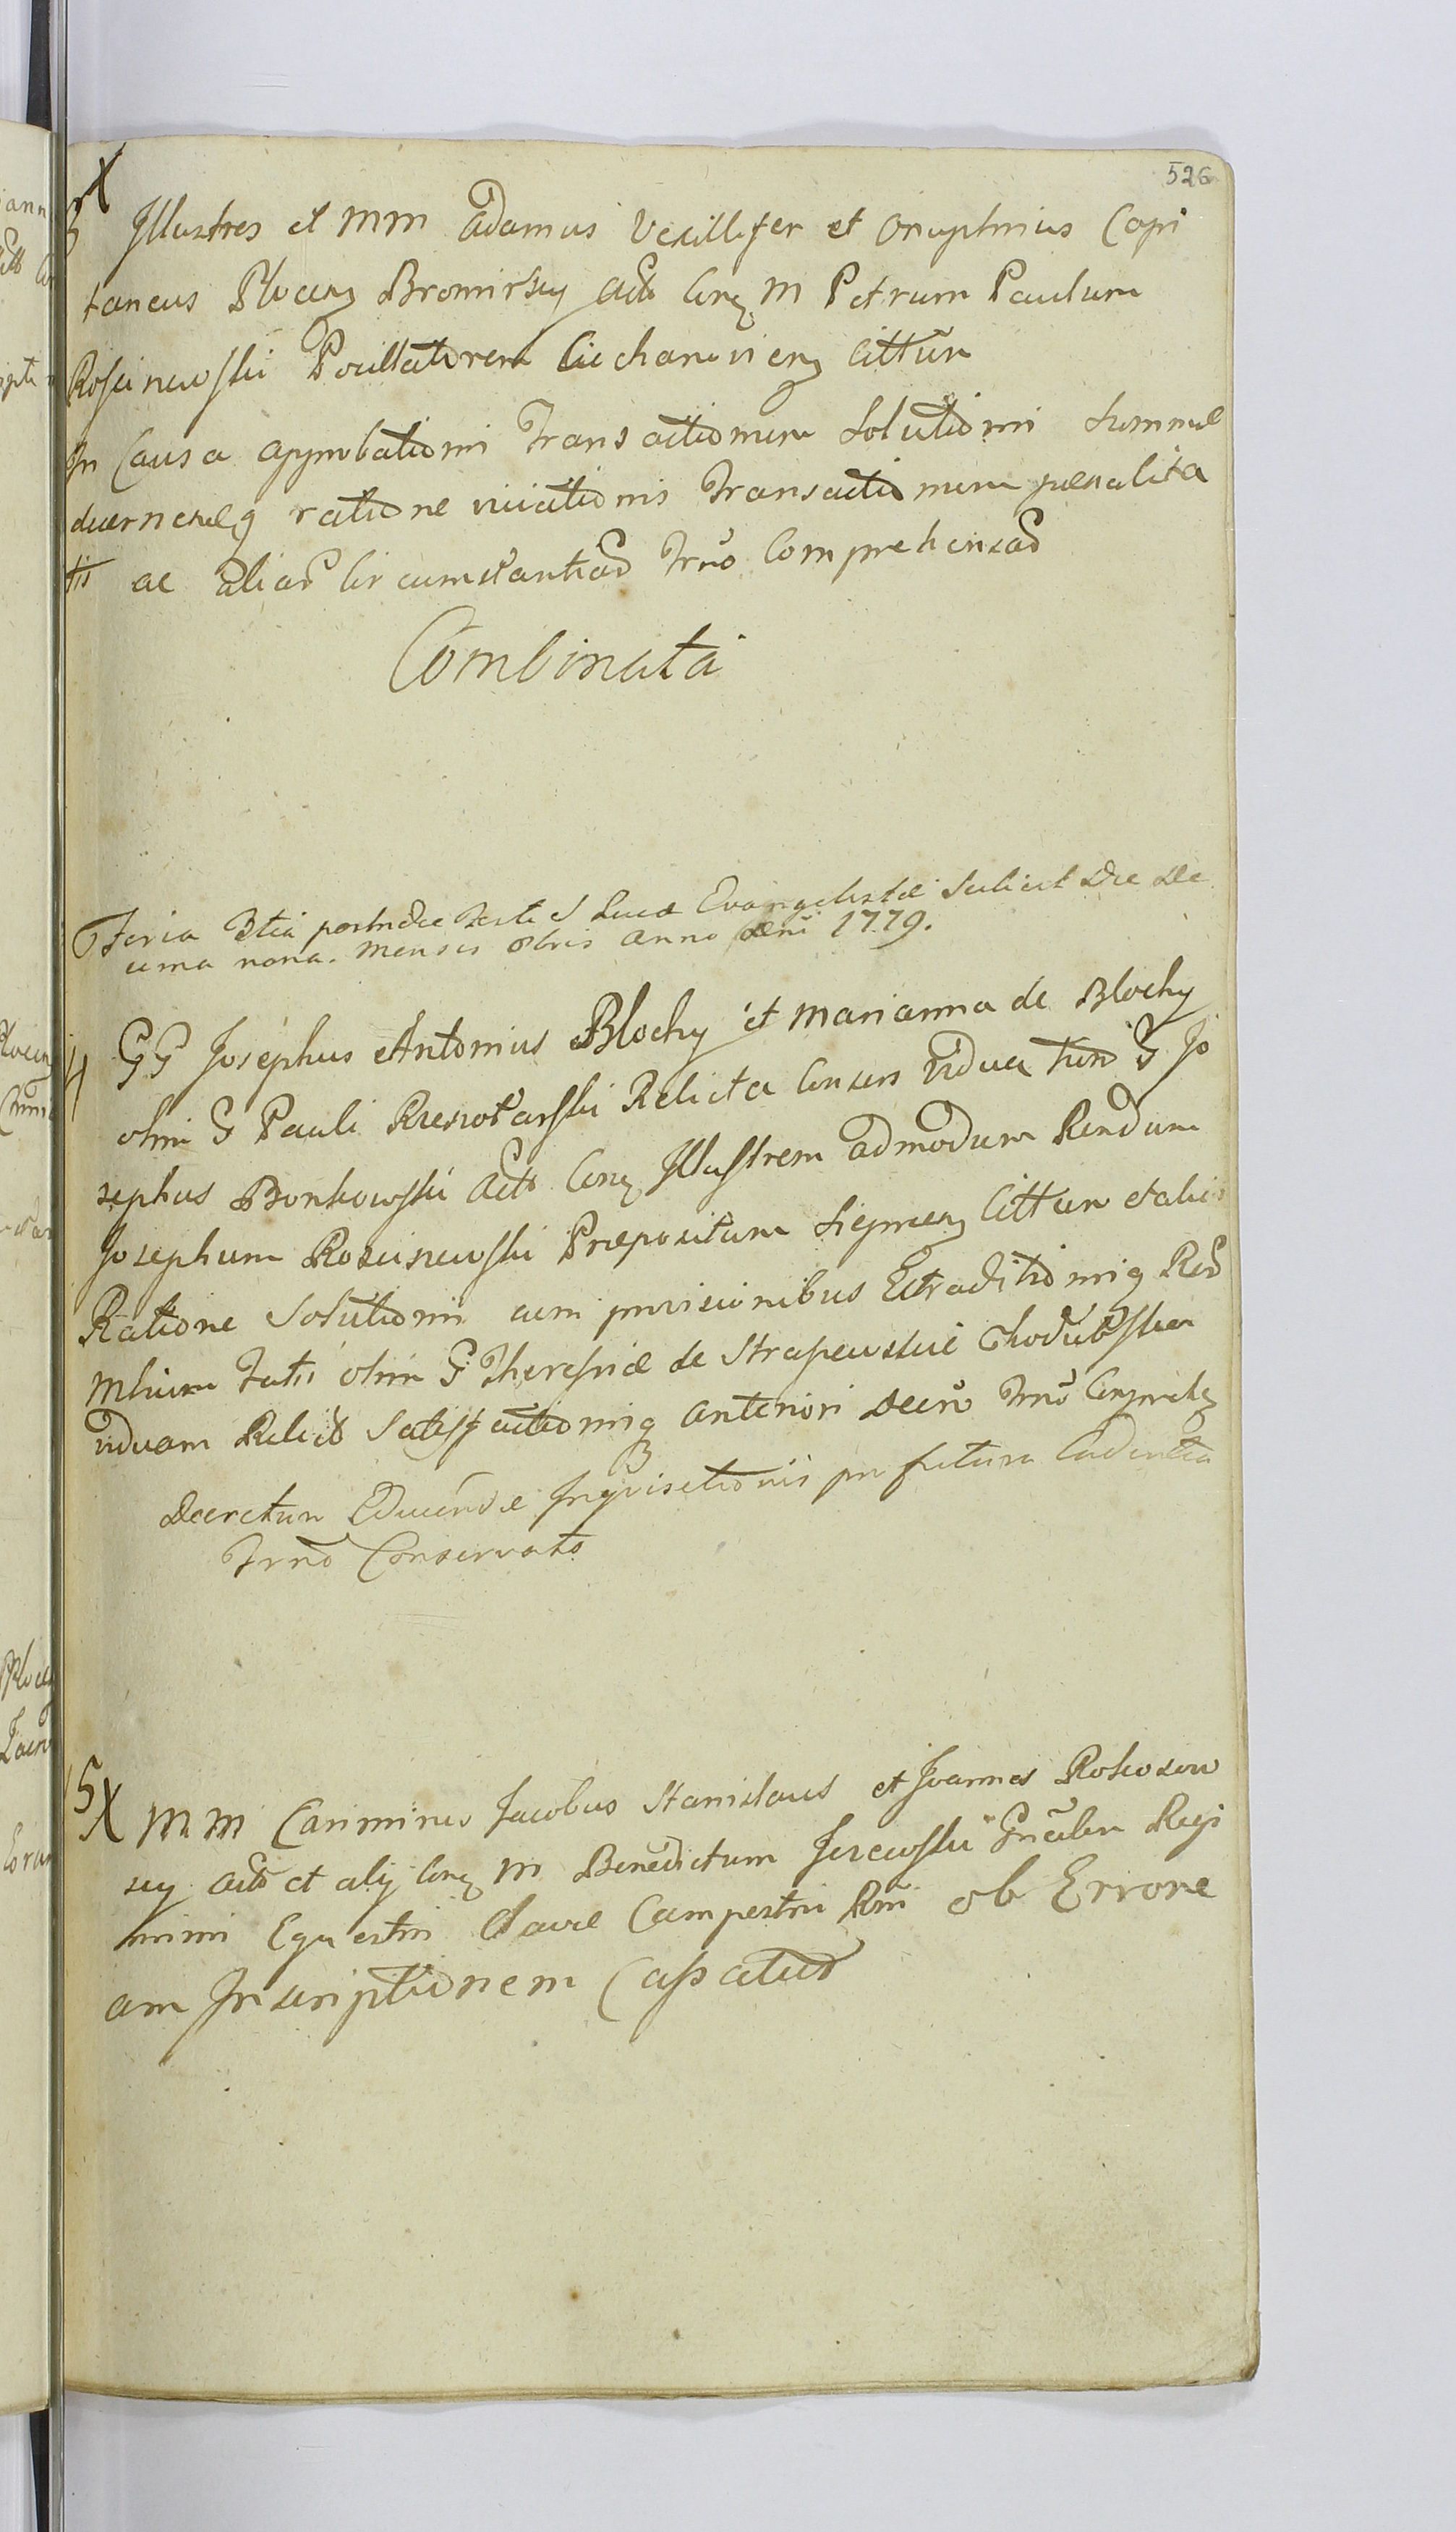 526
X
3 Illustres et MM Adamus Vexillifer et Onuphrius Capi
taneus Plocens Bromirscy Act Conq M Petrum Paulum
Rosciszewski Pocillatorem Ciechanoviens Cittum
In Causa approbationi Transactionum Solutioni Summæ
ratione Transactionum pænalita
tis ac alias circumstantias Trno Comprehensas
Combinata
Feria 3tia postridie Festi S Lucæ Evangelistæ Scilicet Die De
cima nona. Mensis 8bris Anno Dni 1779.
4 GG Josephus Antonius Blochy et Marianna de Blochy
olim G Pauli Relicta Consors Vidua tum G Jo
sephus Bonkowski Act Conq Illustrem admodum Rendum
Josephum Rosciszewski Præpositum Cittum et alii
Ratione Solutioni cum provisionibus Extraditioniq
Mbium olim G Theresiæ de
viduam Relict Satisfactioniq anteriori Decro Trno Compreh
Decretum Educendæ Inquisitionis pro futura Cadentia
Trno Conservato
5 X MM Casimirus Jacobus Stanislaus et Joannes Rokosow
scy Act et alij Conq M Benedictum Jezewski Gnalem Regi
mini Equestri Clavæ Campestri Rni ob Errone
am Inscriptionem Cassatus